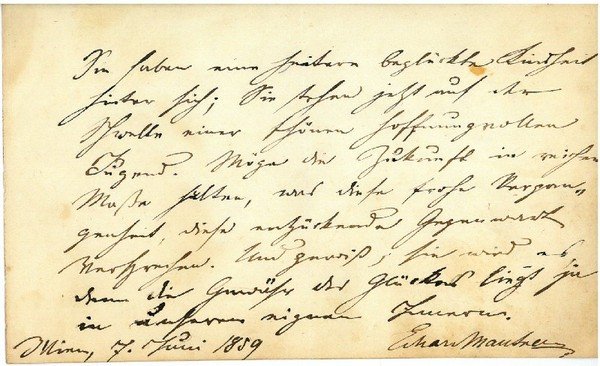 Sie haben eine heitere beglückte Kindheit
hinter sich; Sie stehen jetzt auf der
Schwelle einer schönen hoffnungsvollen
Jugend. Möge die Zukunft in reichem
Maße halten, was diese frohe Vergan-
genheit, diese entzückende Gegenwart
versprechen. Und gewiß, sie wird es
denn die Gewähr des Glückes liegt ja
in unserem eignen Innern.
Wien, 7. Juni 1859